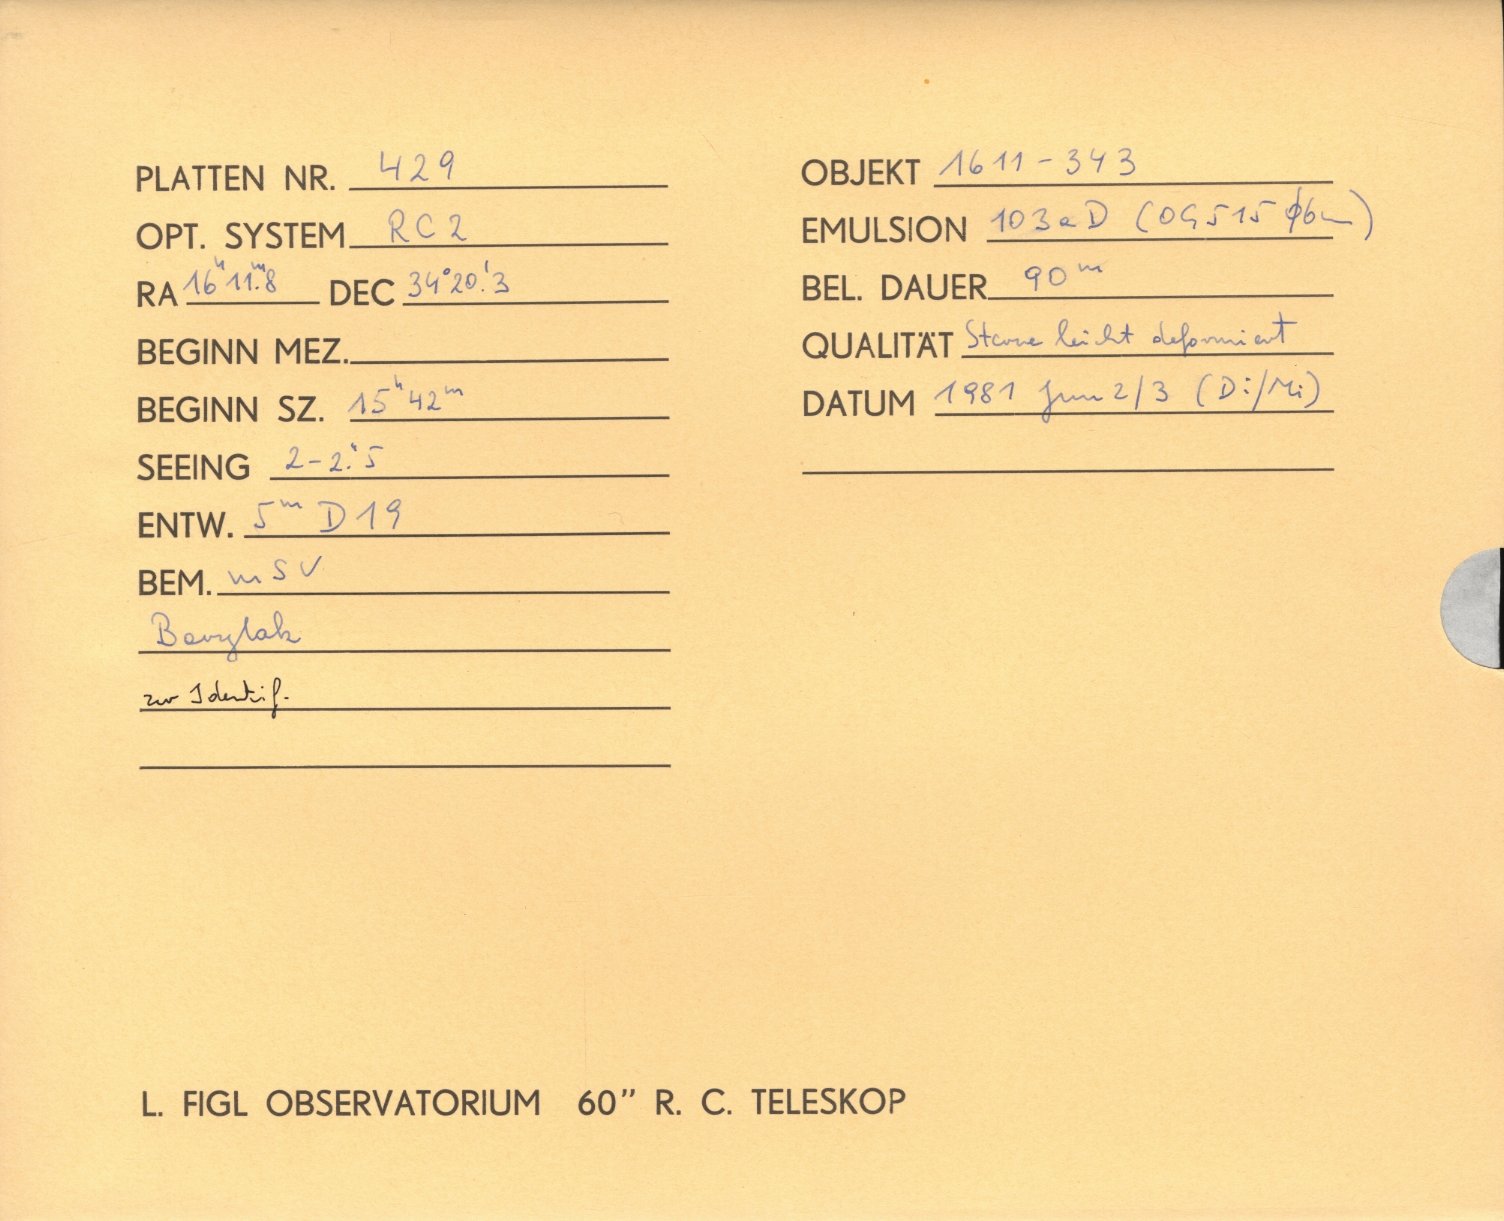 PLATTEN NR. 429
OPT. SYSTEM RC2
RA 16ʰ11ᵐ.8 DEC 34°20.'3
BEGINN MEZ.
BEGINN SZ. 15ʰ42ᵐ
SEEING 2-2."5
ENTW. 5ᵐ D19
BEM. mSV
zur Identif.
OBJEKT 1611-343
EMULSION 103aD (OG515 ϕ6)
BEL. DAUER 90ᵐ
QUALITÄT Sterne leicht deformiert
DATUM 1981 Jun 2/3 (Di/Mi)
L. FIGL OBSERVATORIUM 60" R. C. TELESKOP